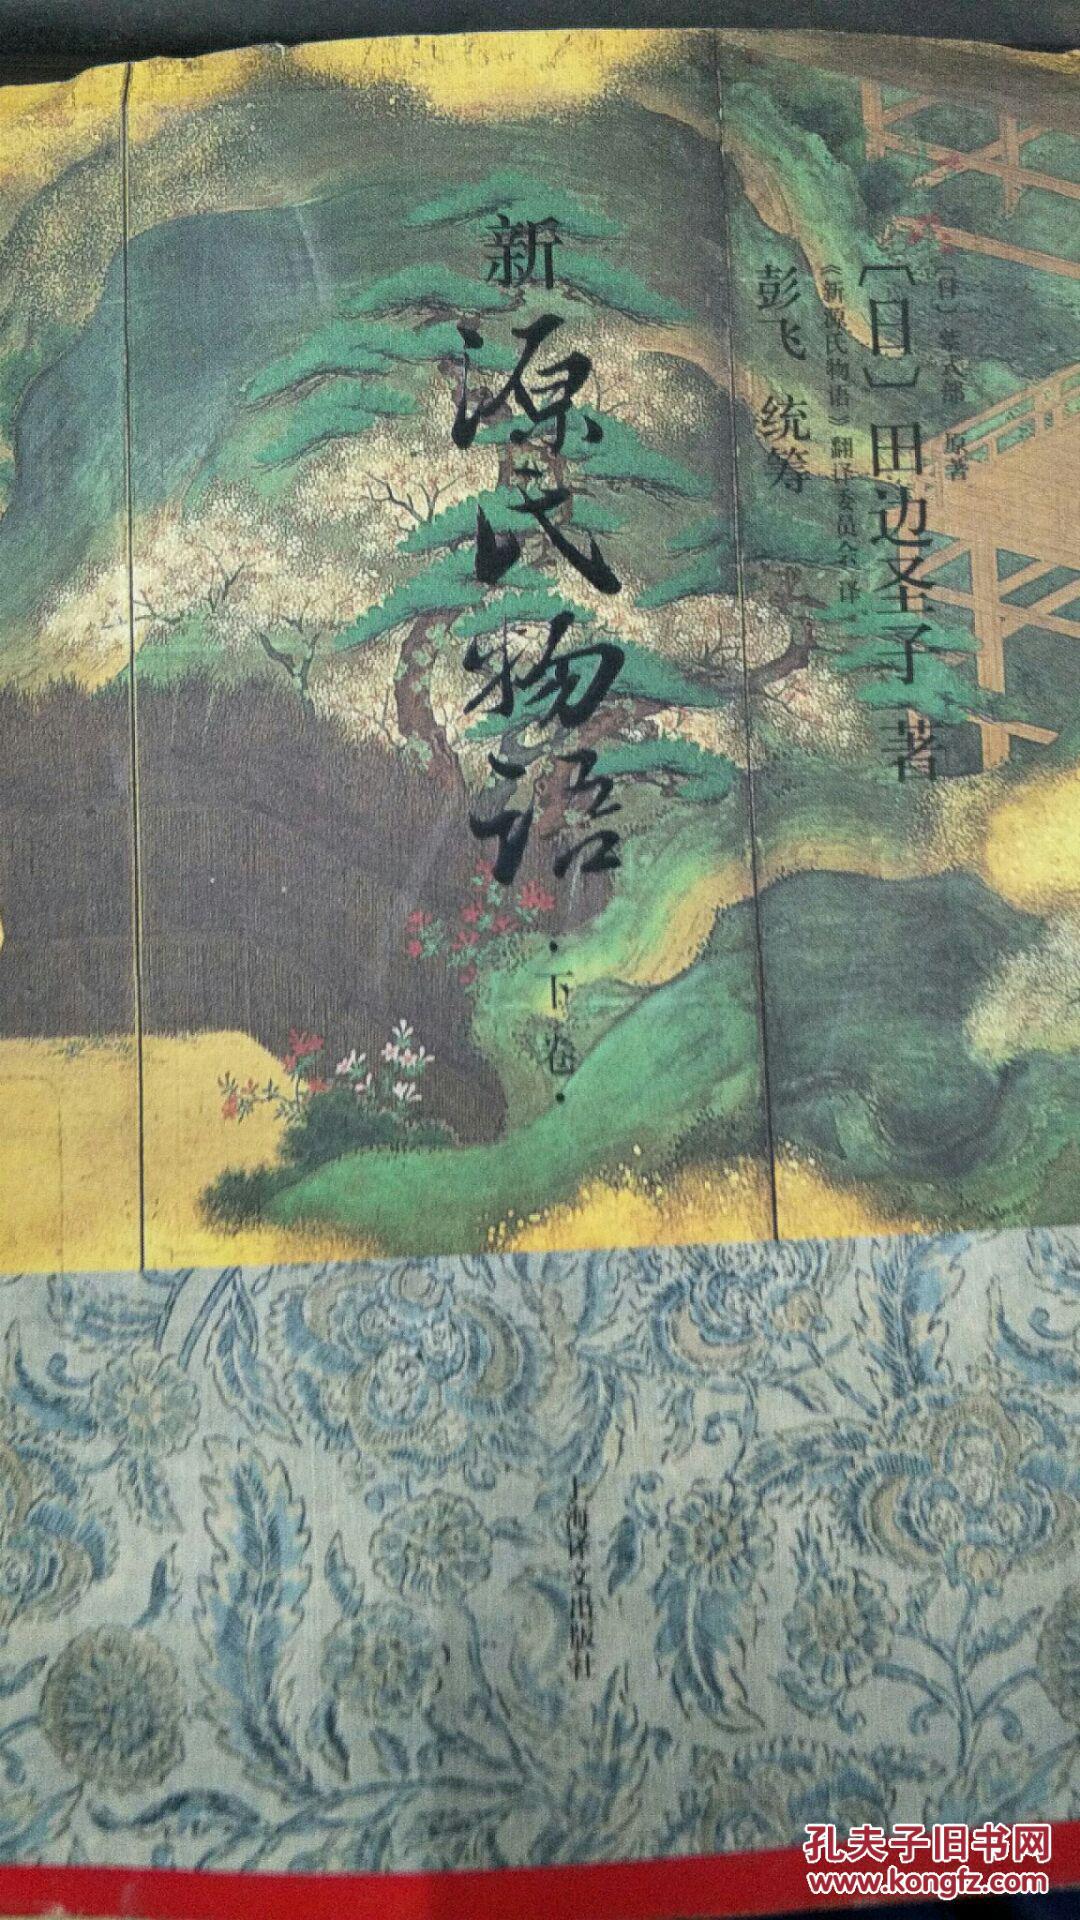 〔日〕紫式部 原著
〔日〕田边圣子 著
《新源氏物语》翻译委员会 译
彭飞 统筹
新源氏物语
·下卷·
上海译文出版社
孔夫子旧书网
www.kongfz.com